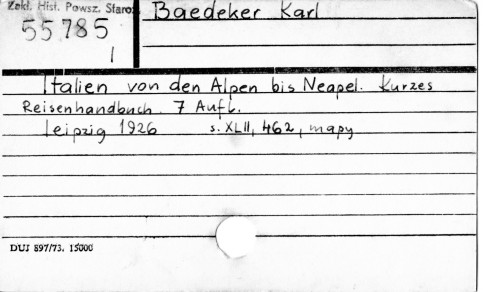 Zakł. Hist. Powsz. Staroż.
Baedeker Karl
55785
I
Italien von den Alpen bis Neapel. Kurzes
Reisenhandbuch. 7 Aufl.
Leipzig 1926 s. XLII, 462, mapy
DUJ 897/73. 15000